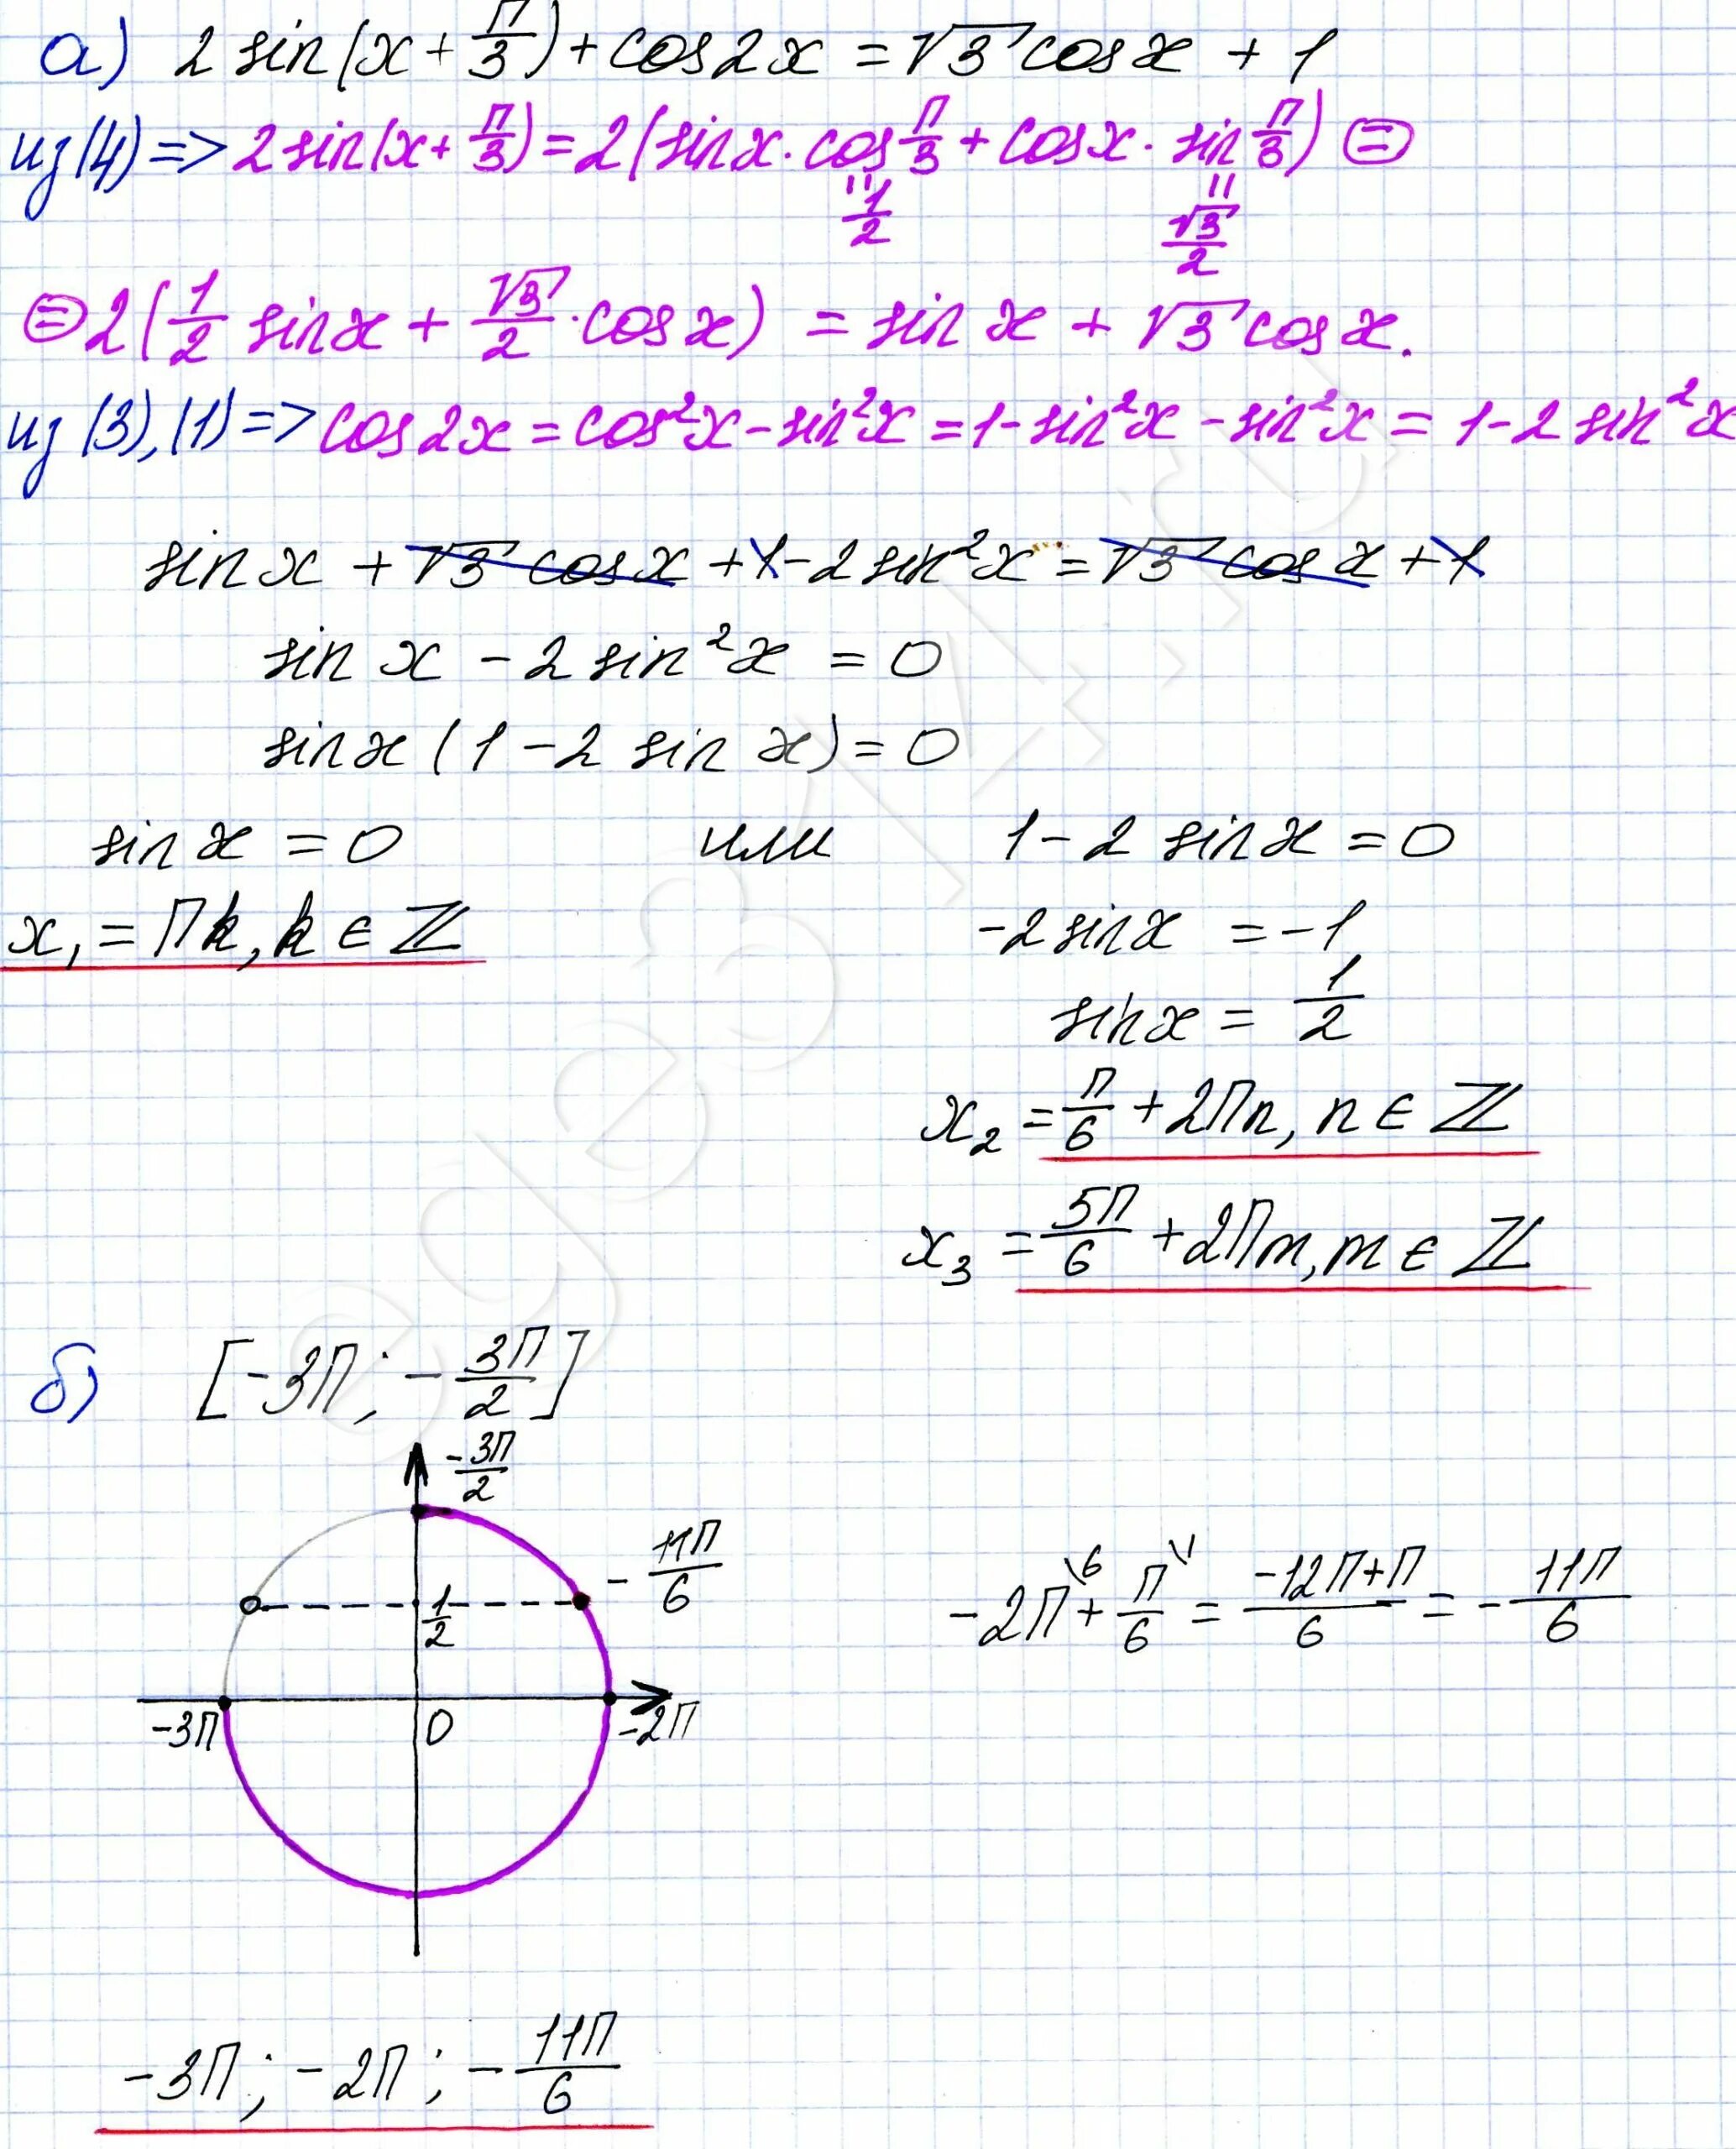 а) 2 sin(x + П/3) + cos2x = √3 cosx + 1
из (4) => 2 sin(x + П/3) = 2(sinx · cos П/3 + cosx · sin П/3) =
" 1/2 " √3/2
= 2(1/2 sinx + √3/2 · cosx) = sinx + √3 cosx.
из (3), (1) => cos2x = cos²x - sin²x = 1 - sin²x - sin²x = 1 - 2 sin²x
sinx + √3 cosx + 1 - 2 sin²x = √3 cosx + 1
sinx - 2 sin²x = 0
sinx (1 - 2 sinx) = 0
sinx = 0 или 1 - 2 sinx = 0
x₁ = Пk, k ∈ ℤ -2 sinx = -1
sinx = 1/2
x₂ = П/6 + 2Пn, n ∈ ℤ
x₃ = 5П/6 + 2Пm, m ∈ ℤ
б) [-3П; -3П/2]
-3П/2
-11П/6
1/2
-2П\6 + П/6\1 = (-12П+П)/6 = -11П/6
-3П 0 -2П
-3П; -2П; -11П/6
ege314.ru